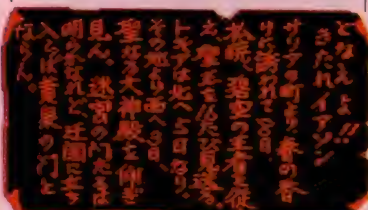 となえよ!!
きたれイアソン
サリアの町より春の香
りに誘われて8日、
松脂、碧空の王者に従
え、聖王を仏たび見送る。
トキアは北へ5日なり。
その地より西へ3日、
聖なる大神殿を仰ぎ
見ん。迷宮の門たるは
明らかなれど、迂闊に立ち
入らば黄泉の門と
ならん。